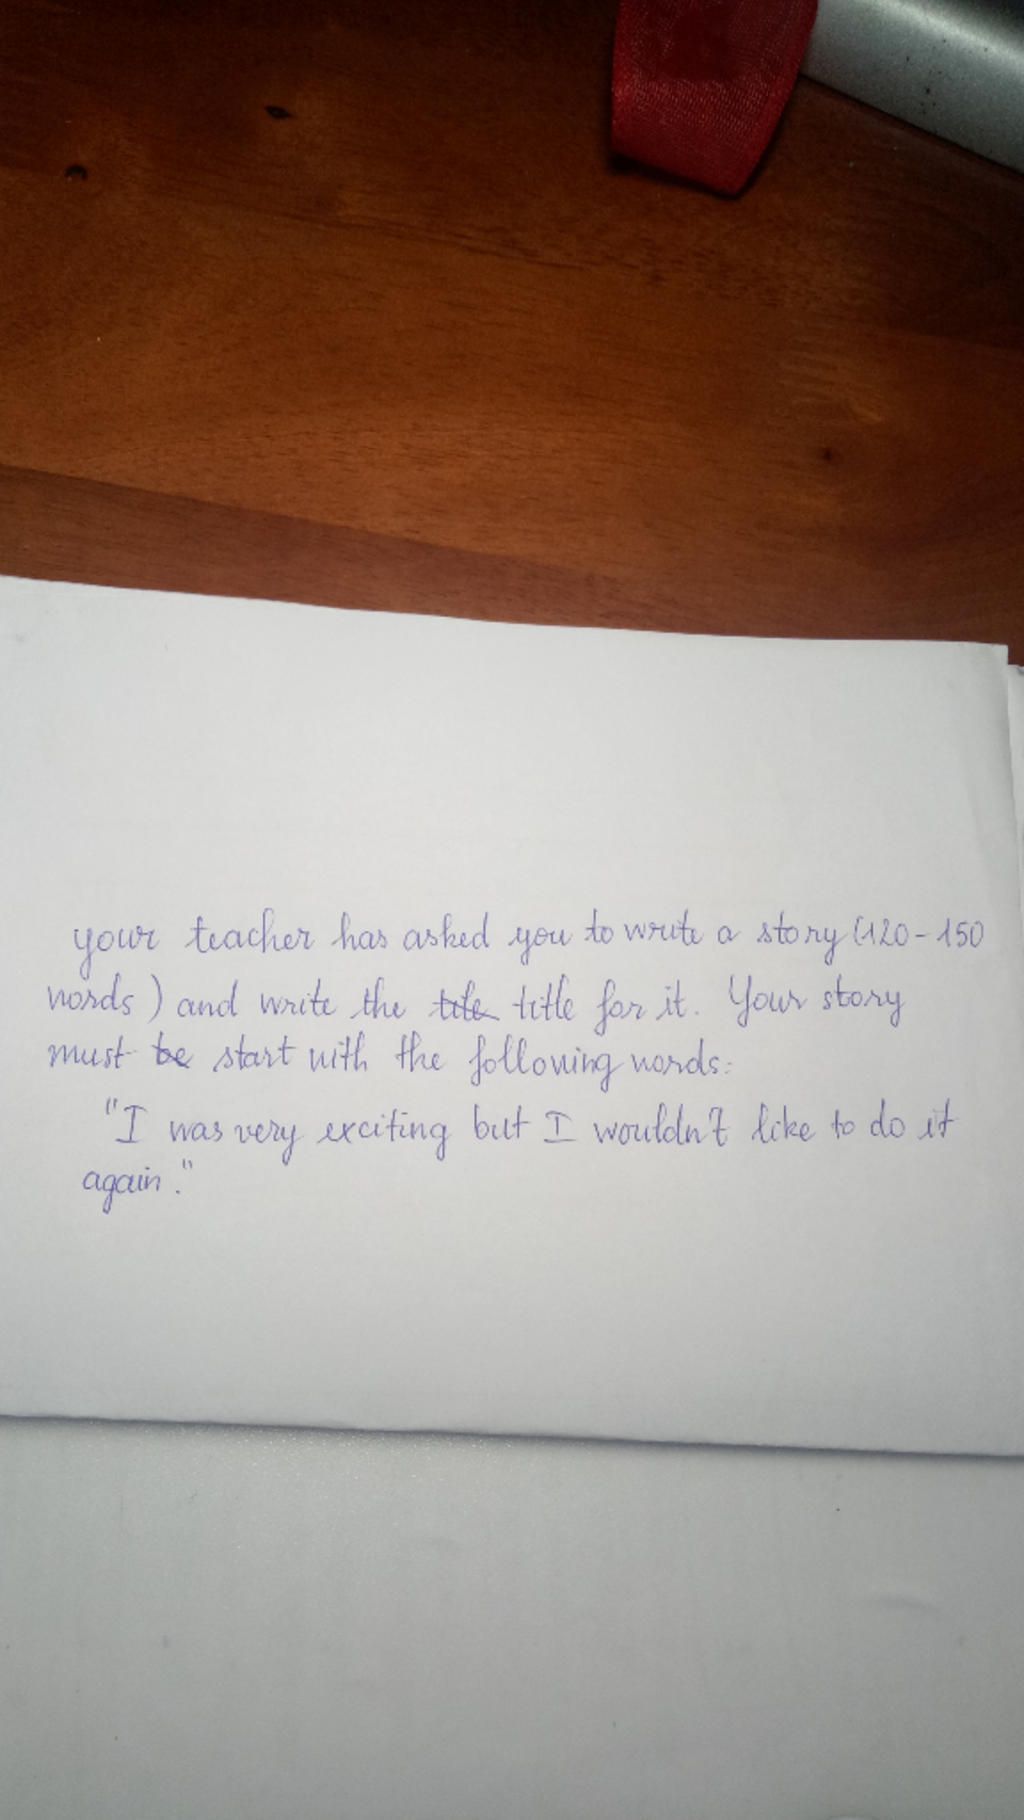 your teacher has asked you to write a story (120-150
words) and write the tile title for it. Your story
must be start with the following words:
"I was very exciting but I wouldn't like to do it
again."